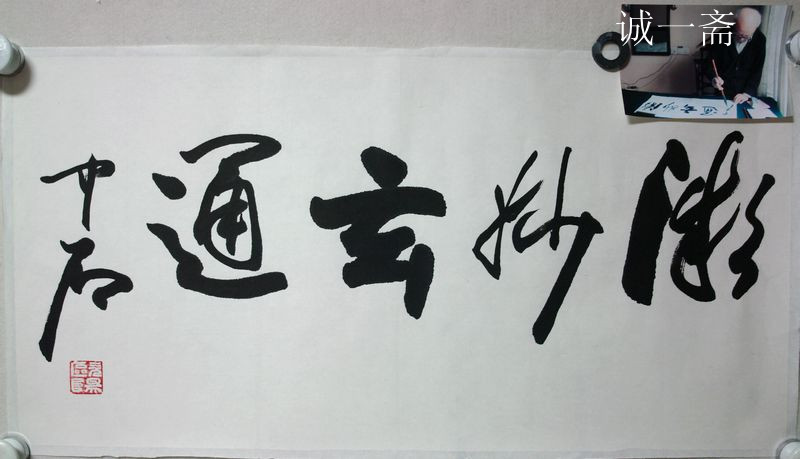 微妙玄通
中石
诚一斋